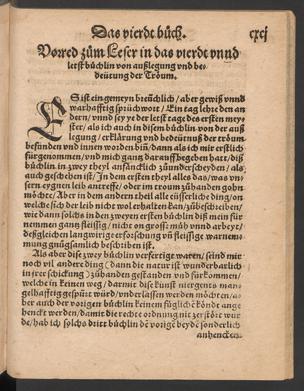 Das vierdt bůch.
cxcj
Vorred zům Leser in das vierdt vnnd
letst büchlin von außlegung vnd be-
deütung der Tröum.
ES ist ein gemeyn breüchlich / aber gewiß vnnd
warhafftig sprüchwort / Ein tag lehre den an
dern / vnnd sey ye der letst tage des ersten mey-
ster / als ich auch in disem büchlin von der auß
legung / erklärung vnd bedeütnuß der tröum
befunden vnd innen worden bin / dann als ich mir erstlich
fürgenommen / vnd mich gantz darauff begeben hatt / diß
büchlin in zwey theyl anfäncklich zůunderscheyden / als
auch geschehen ist / In dem ersten theyl alles das / was vn
sern eygnen leib antreffe / oder im troum zůhanden gohn
möchte / Aber in dem andern theil alle eüsserliche ding / on
welche sich der leib nicht wol erhalten kan / zůbeschreiben /
wie dann solchs in den zweyen ersten büchlin diß mein für
nemmen gantz fleissig / nicht on grosse müh vnnd arbeyt /
deßgleichen langwiriger erforschung vñ fleissige warnem-
mung gnůgsamlich beschriben ist.
Als aber dise zwey büchlin verfertigt waren / seind mir
noch vil andere ding (dann die natur ist wunderbarlich
in jrer schickung) zůhanden gestanden vnd fürkommen /
welche in keinen weg / darmit dise kunst niergents man-
gelhafftig gespürt würd / vnderlassen werden möchten / a-
ber auch der vorigen büchlin keinem füglich eÿ könde ange
henckt werden / damit die rechte ordnung nit zerstört wur
de / hab ich solchs dritt büchlin dẽ vorigẽ beydẽ sonderlich
anhencken